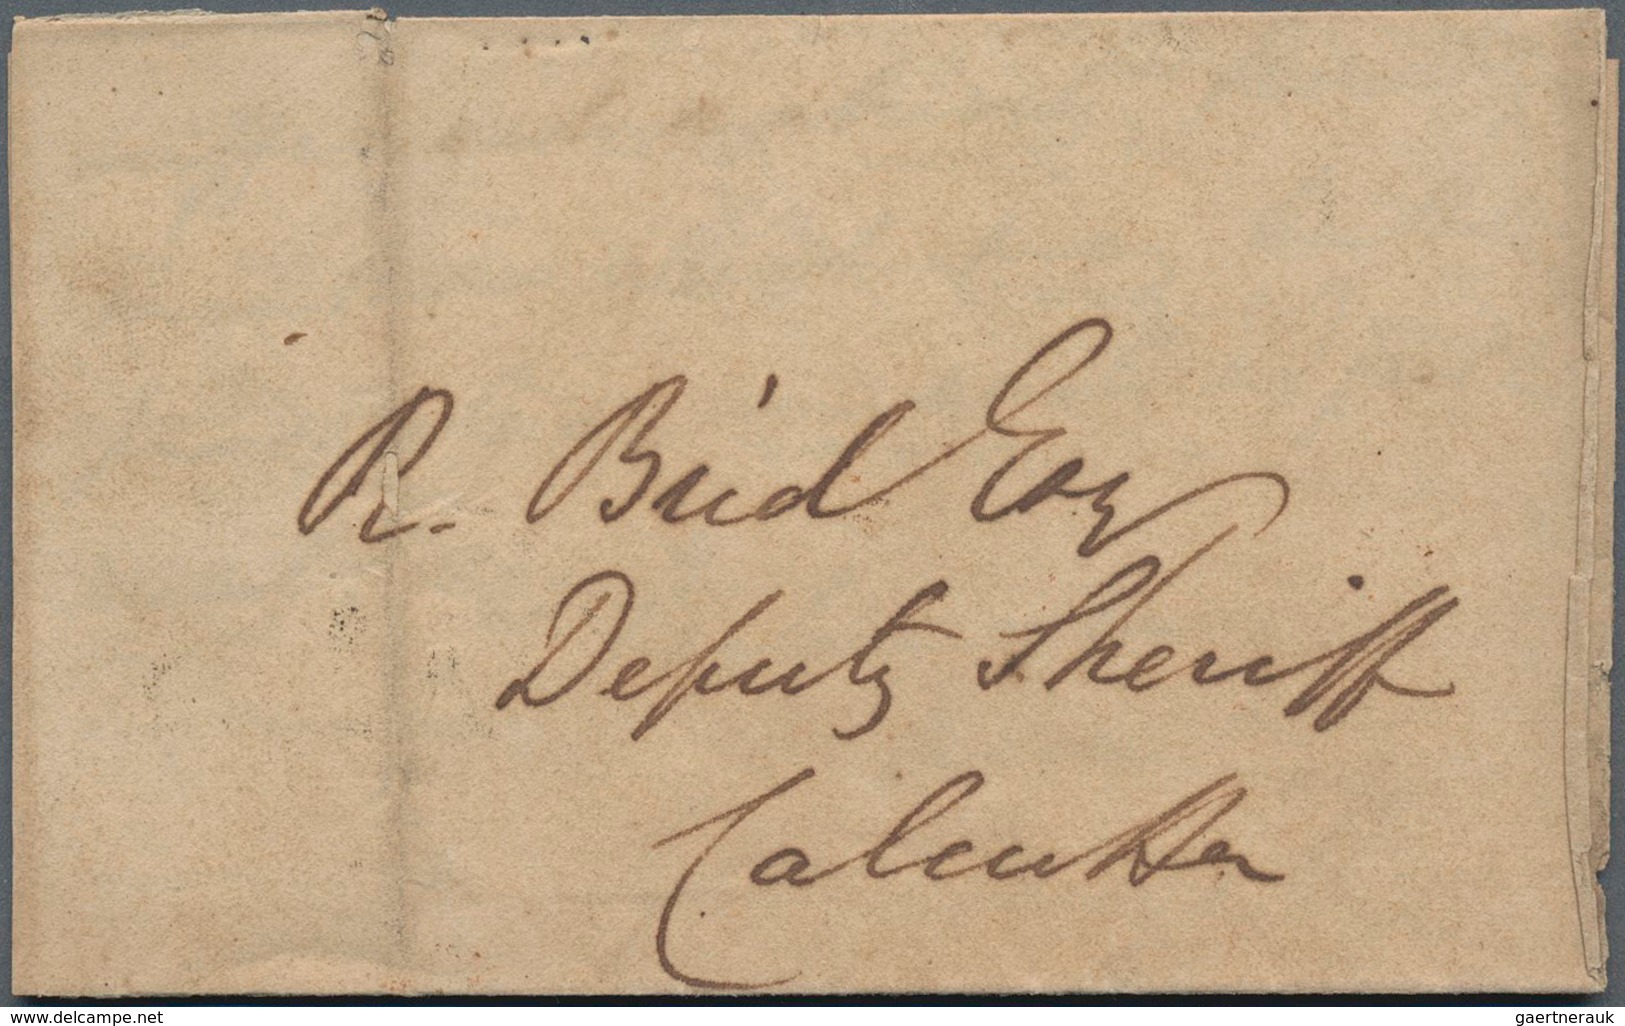 R. Bird Esq
Deputy Sheriff
Calcutta
www.delcampe.net
gaertnerauk